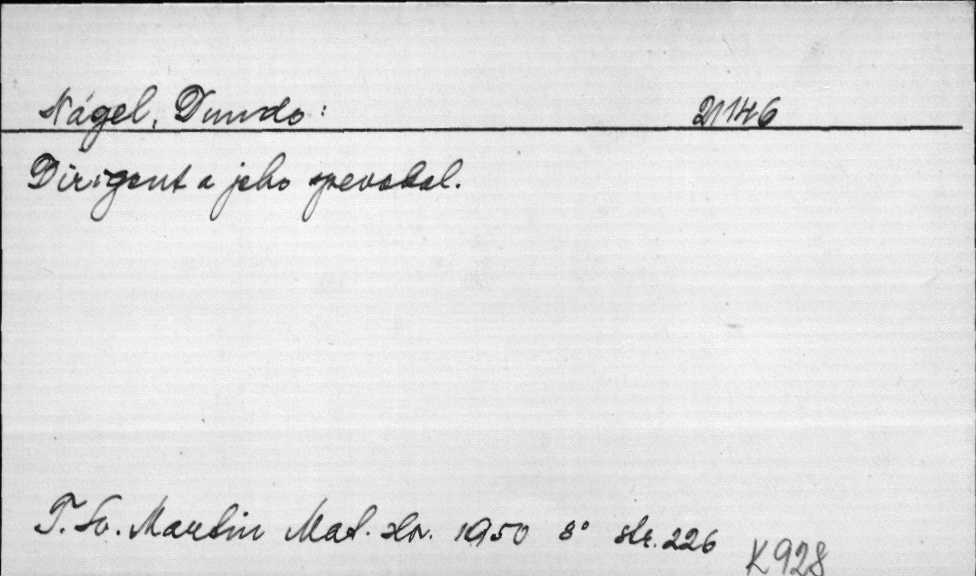 Nágel, Dundo: 21146
Dirigent a jeho spevokol.
T. Sv. Martin Mat. slov. 1950 8° str. 226
K 928